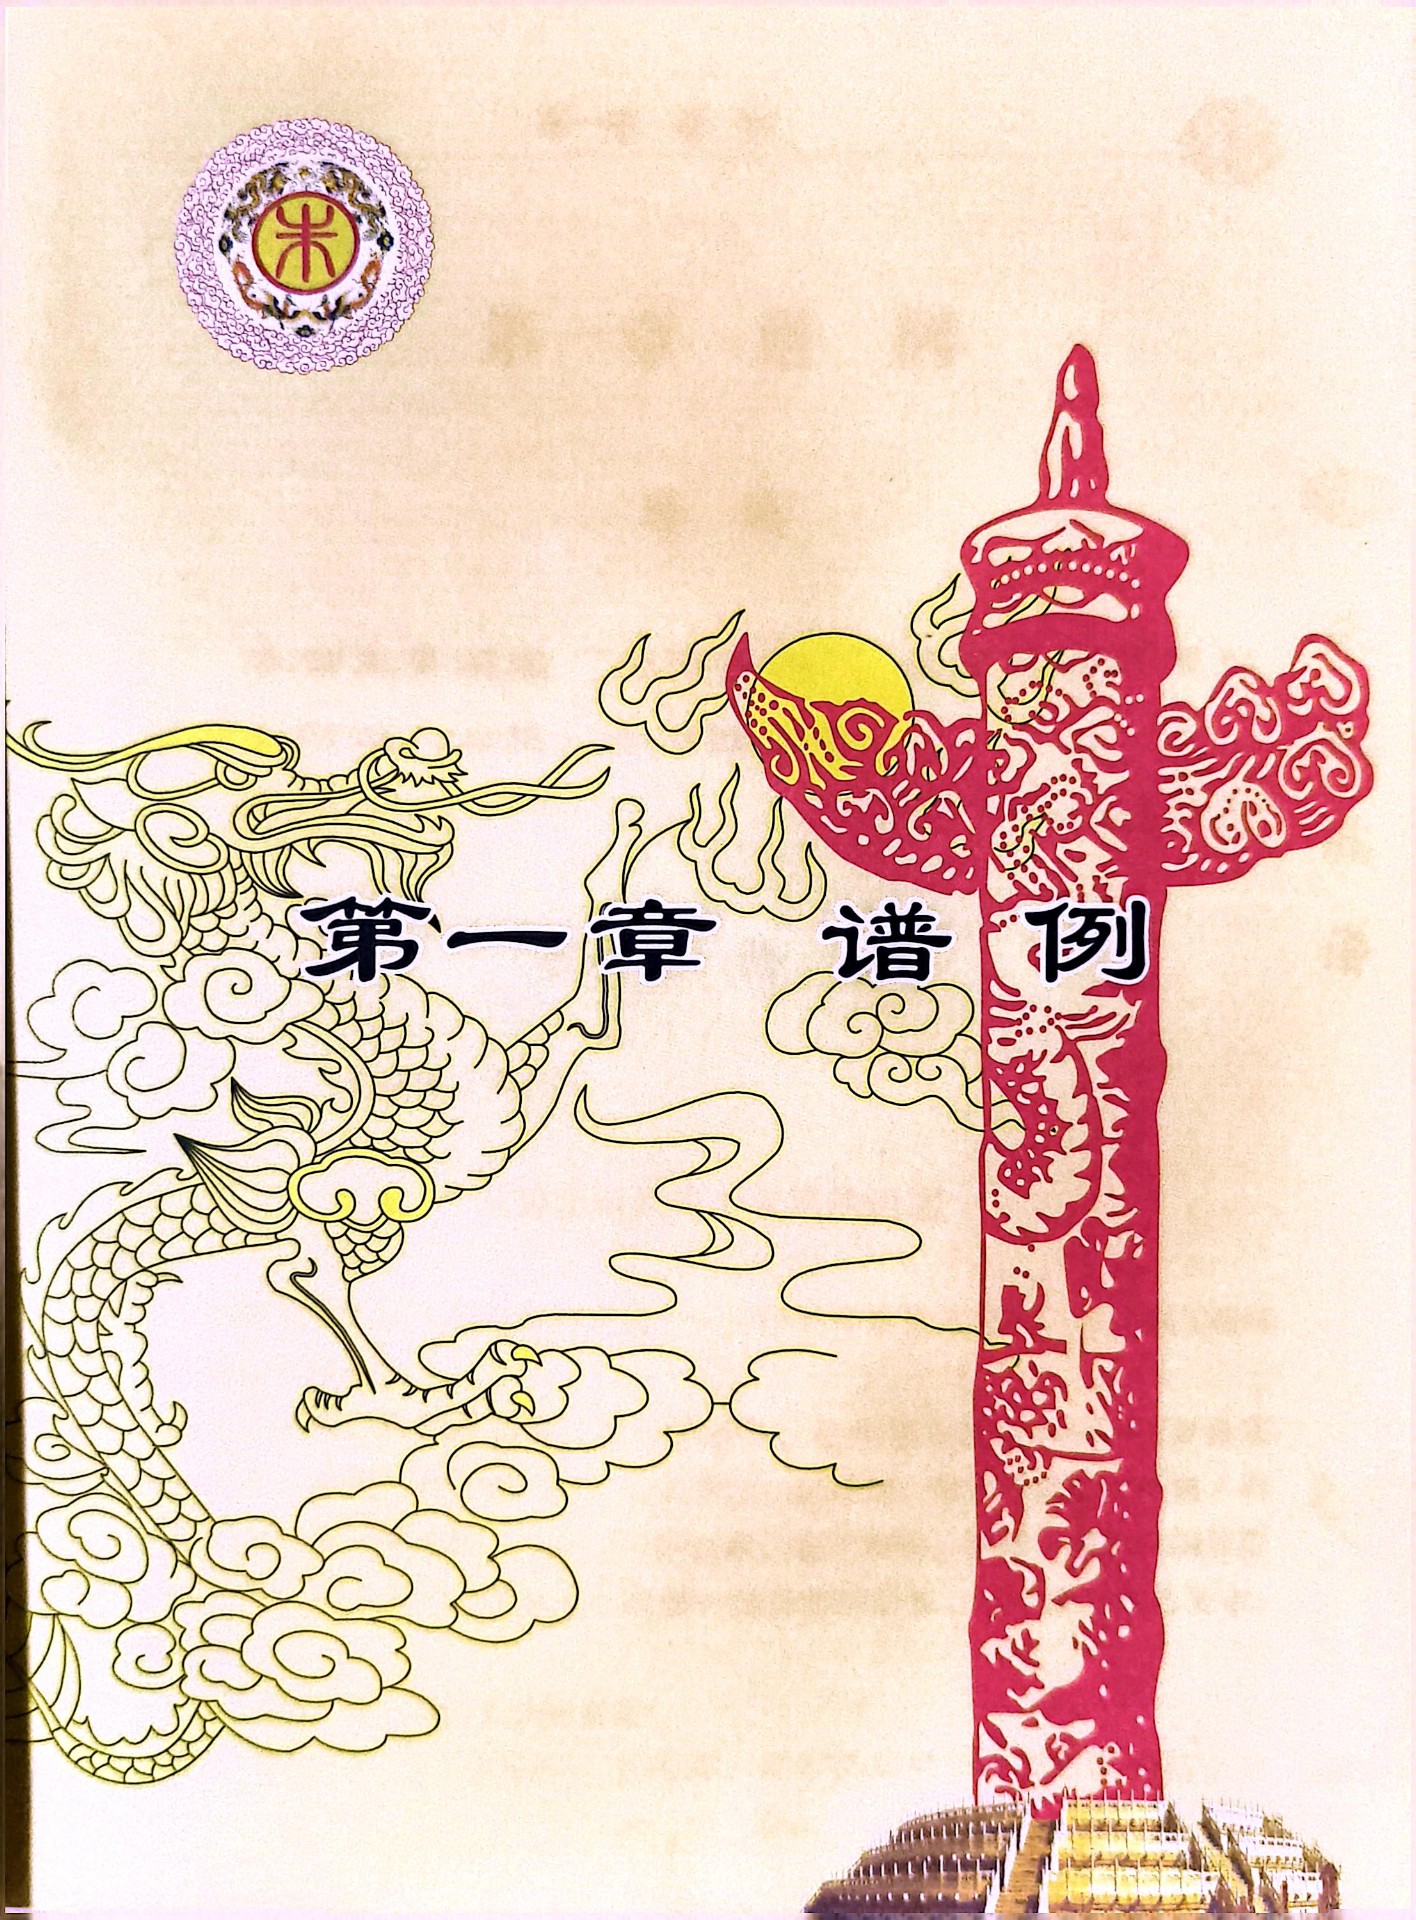 朱
第一章 谱 例